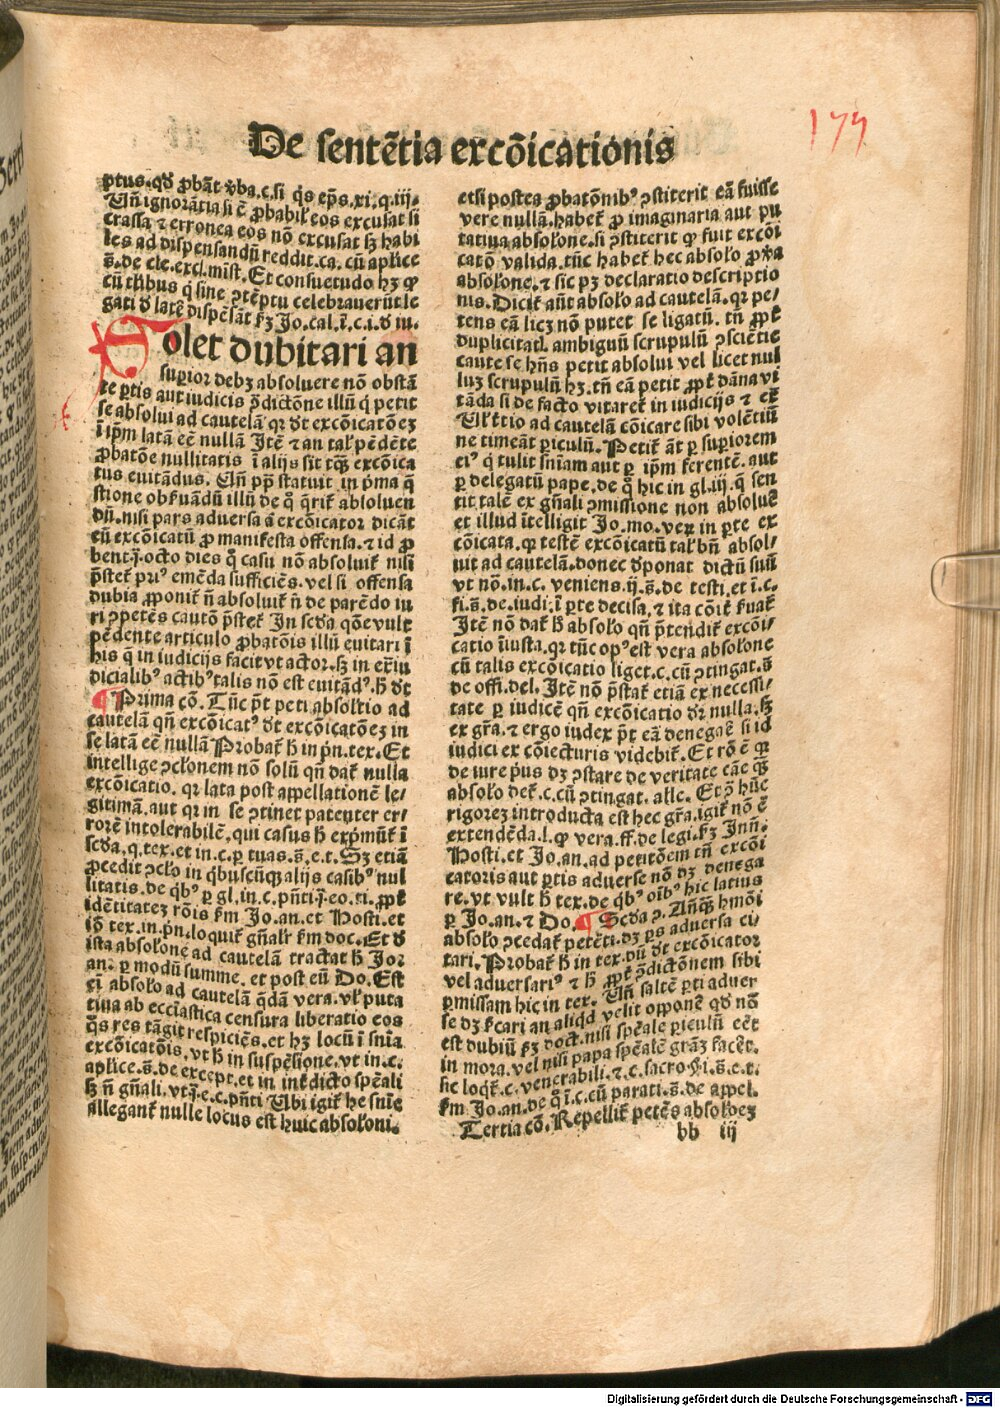 De sentētia excōicationis
177
ptus. qđ ꝓbāt v̓ba. c. si q̇s eps̄. xi. q. iij.
Uñ ignorātia si ē ꝓbabil̓ eos excusat si
crassa ⁊ erronea eos nō excusat sꝫ habi
les ad dispensandū reddit. ca. cū aplice
s̄. de cle. excl. mīst. Et consuetudo hꝫ ꝙ
cū tlibus q̇ sine ꝯtēptu celebrauerūt le
gati đ latē dispēsāt ẜꝫ Jo. cal. ī. c. i. đ iu.
Solet dubitari an
suꝑior debꝫ absoluere nō obstā
te ꝑtis aut iudicis ꝯ̄dictōne illū q̇ petit
se absolui ad cautelā qꝛ dt̄ excōicatōeꝫ
ī ip̄m latā eē nullā Jtē ⁊ an tal̓ pēdēte
ꝓbatōe nullitatis ī alijs sit tāq̄ꝫ excōica
tus euitādus. Uñ pp̄ statuit in p̓ma q̄
stione obẜuādū illū de q̊ q̄rit̓ absoluen
dū. nisi pars aduersa ā excōicator dicāt
eū excōicatū ꝓ manifesta offensa. ⁊ id ꝓ
bent. j̄. octo dies q̊ casu nō absoluit̓ nisi
p̄stet̓ pri⁹ emēda sufficiēs. vel si offensa
dubia ꝓponit̓ ñ absoluit̓ ñ de parēdo iu
ri ꝯpetēs cautō p̄stet̓ Jn sc̄đa qōe vult
pēdente articulo ꝓbatōis illū euitari ī
his q̄ in iudicijs facit vt actor. sꝫ in ex̄iu
dicialib⁹ actib⁹ talis nō est euitād⁹. h̄ dt̄
¶ Prima cō. Tūc p̄t peti absolt̓io ad
cautelā qñ excōicat⁹ dt̄ excōicatōeꝫ in
se latā eē nullā Probat̓ h̄ in p̓n. tex. Et
intellige ꝯcl̓onem nō solū qñ dat̓ nulla
excōicatio. qꝛ lata post appellationē le⸗
gitimā. aut qꝛ in se ꝯtinet patenter er⸗
rorē intolerabilē. qui casus h̄ exp̓munt̓ ī
sc̄đa. q. tex. et in. c. ꝑ tuas. s̄. e. t. Sꝫ etiā
ꝓcedit ꝯcl̓o in q̇buscūqꝫ alijs casib⁹ nul
litatis. de q̇b⁹ ꝑ gl. in. c. p̄nti. j̄. eo. ti. ꝓpt̓
idētitatez rōis ẜm Jo. an. et Hosti. et
iō tex. in. p̓n. loquit̓ gñalr̓ ẜm doc. Et đ
ista absol̓one ad cautelā tractat h̄ Jo
an. ꝑ modū summe. et post eū Do. Est
ei̓ absol̓o ad cautelā q̇dā vera. vl̓ puta
tiua ab ecciastica censura liberatio eos
q̊s res tāgit respiciēs. et hꝫ locū ī sñia
excōicatōis. vt h̄ in suspēsione. vt in. c.
aplice. s̄. de except. et in int̓dicto spēali
sꝫ ñ gñali. vt. j̄. e. c. p̄nti Ubi igit̓ he sñie
allegant̓ nulle locus est huic absol̓oni.
etsi postea ꝓbatōnib⁹ ꝯstiterit eā fuisse
vere nullā. habet̓ ꝓ imaginaria aut pu
tatiua absol̓one. si ꝯ̄stiterit ꝙ fuit excōi
catō valida. tūc habet̓ hec absol̓o ꝓ v̓a
absol̓one. ⁊ sic pꝫ declaratio descriptio
nis. Dicit̓ aūt absol̓o ad cautelā. qꝛ pe⸗
tens eā licꝫ nō putet se ligatū. tñ ꝓpt̓
duplicitatē ambiguū scrupulū ꝯsciētie
caute se hñs petit absolui vel licet nul
luꝫ scrupulū hꝫ. tñ eā petit ꝓpt̓ dāna vi
tāda si de facto vitaret̓ in iudicijs ⁊ ex̄
Ul̓ ẜtio ad cautelā cōicare sibi volētiū
ne timeāt ꝑiculū. Petit̓ āt ꝑ suꝑiorem
ei⁹ q̇ tulit sñiam aut ꝑ ip̄m ferentē. aut
ꝑ delegatū pape. de q̊ hic in gl. iij. q̄ sen
tit talē ex gñali ꝯmissione non absoluē
et illud ītelligit Jo. mo. verū in ꝑte ex
cōicata. qꝛ testē excōicatū tal̓ bñ absol⸗
uit ad cautelā. donec đponat dictū suū
vt nō. in. c. veniens. ij. s̄. de testi. et i. c.
fi. s̄. de. iudi. ī ꝑte decisa. ⁊ ita cōit̓ ẜuat̓
Jtē nō dat̓ h̄ absol̓o qñ p̄tendit̓ excōi⸗
catio īiusta. qꝛ tūc op⁹ est vera absol̓one
cū talis excōicatio liget. c. cū ꝯtingat. s̄
de offi. del. Jtē nō p̄stat̓ etiā ex necessi⸗
tate ꝑ iudicē qñ excōicatio dr̄ nulla. sꝫ
ex gr̄a. ⁊ ergo iudex p̄t eā denegaē si id
iudici ex cōiecturis videbit̓. Et rō ē qꝛ
de iure p̓us dꝫ ꝯstare de veritate cāe q̄ꝫ
absol̓o det̓. c. cū ꝯtingat. alle. Et ꝯ̄ hūc
rigoreꝫ introducta est hec gr̄a. igit̓ nō ē
extendēda. l. ꝙ vera. ff. de legi. ẜꝫ Jnñ.
Hosti. et Jo. an. ad petitōem tñ excōi
catoris aut ꝑtis aduerse nō dꝫ denega
re. vt vult h̄ tex. de q̇b⁹ oīb⁹ hic latius
ꝑ Jo. an. ⁊ Do. ¶ Sc̄đa ꝯ. Añq̄ꝫ hmōi
absol̓o ꝯcedat̓ petēti. dꝫ ꝑs aduersa ci⸗
tari. Probat̓ h̄ in tex. dū dt̄ excōicator
vel aduersari⁹ ⁊ h̄ ꝓpt̓ ꝯ̄dictōnem sibi
ꝑmissam hic in tex. Uñ saltē ꝑti aduer
se dꝫ ẜcari an aliqd̓ velit opponē qđ nō
est dubiū ẜꝫ doct. nisi spēale ꝑiculū eēt
in mora. vel nisi papa spēalē grāꝫ facēt.
sic loqt̓. c. venerabili. ⁊ c. sacro. fi. s̄. e. t.
ẜm Jo. an. de q̊ ī. c. cū parati. s̄. de appel.
Tertia cō. Repellit̓ petēs absol̓oeꝫ
bb iij
Digitalisierung gefördert durch die Deutsche Forschungsgemeinschaft - DFG